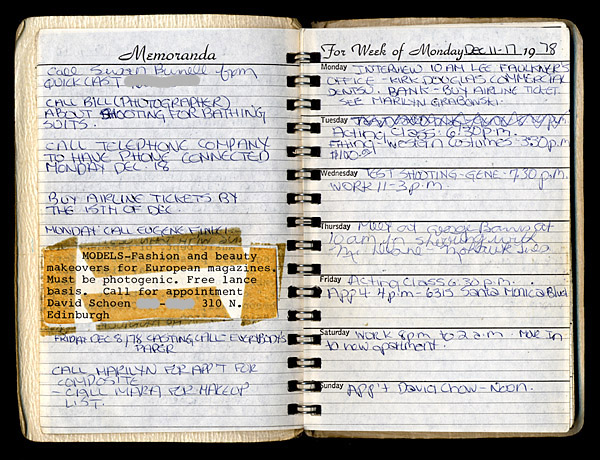 Memoranda
Call Susan Bunell from
QUICK CAST
CALL BILL (PHOTOGRAPHER)
ABOUT SHOOTING FOR BATHING
SUITS.
CALL TELEPHONE COMPANY
TO HAVE PHONE CONNECTED
MONDAY DEC. 18
BUY AIRLINE TICKETS BY
THE 15TH OF DEC.
MONDAY CALL EUGENE
MODELS-Fashion and beauty
makeovers for European magazines.
Must be photogenic. Free lance
basis. Call for appointment
David Schoen 310 N.
Edinburgh
FRIDAY DEC 8/78 CASTING CALL- EVERYBODY'S
PAPER
CALL MARILYN FOR APP'T FOR
COMPOSITE
- CALL MARA FOR MAKEUP
LIST.
For Week of Monday DEC 11-17, 1978
Monday INTERVIEW 10 AM LEE FAULKNER'S
OFFICE - KIRK DOUGLAS COMMERCIAL
DENTSU. BANK - BUY AIRLINE TICKET
SEE MARILYN GRABOWSKI.
Tuesday
Acting Class - 6:30 p.m.
Fitting - Western Costumes - 3:30 p.m.
$100.00
Wednesday TEST SHOOTING - GENE - 7:30 p.m.
WORK 11-3 p.m.
Thursday Meet at George Barris at
10 am In
Friday Acting Class 6:30 p.m.
App 4: 4 p.m - 6315 Santa Monica Blvd
Saturday WORK 8pm to 2 a.m Move In
to new apartment.
Sunday App't David Chow - Noon.